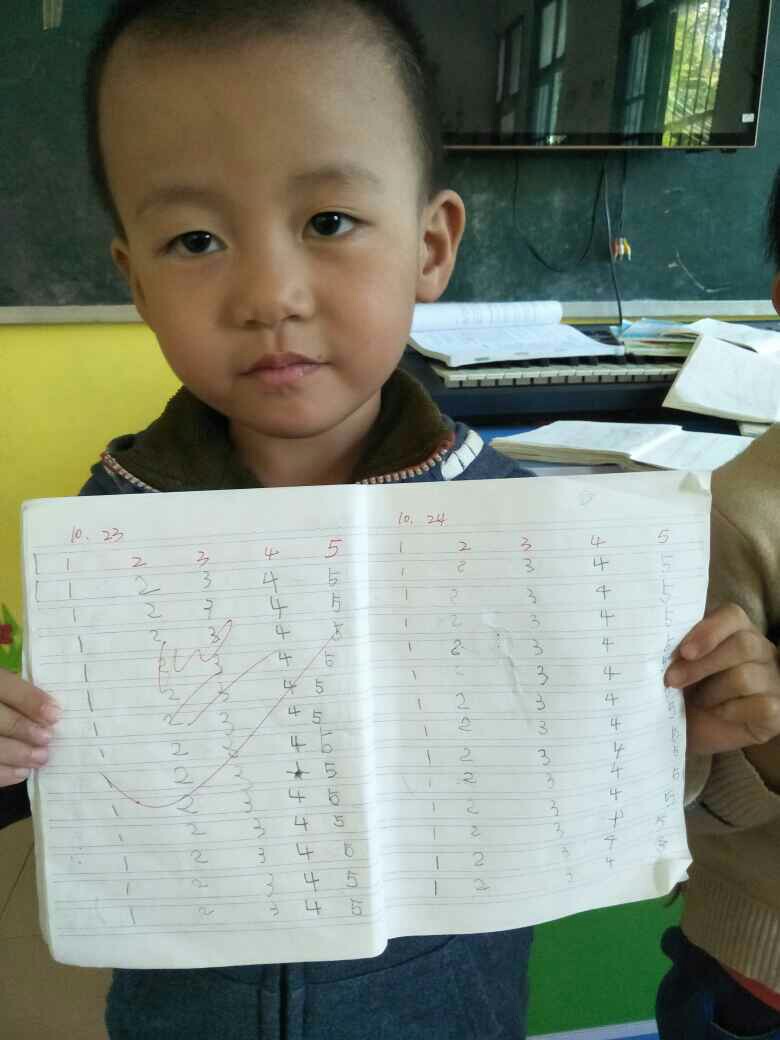 10. 23
1 2 3 4 5
1 2 3 4 5
1 2 3 4 5
1 2 3 4 5
1 3 4 5
1 2 3 4 5
1 2 3 4 5
1 2 4 5
1 2 3 5
1 2 3 4 5
1 2 3 4 5
1 2 3 4 5
1 2 3 4 5
1 2 3 4 5
10. 24
1 2 3 4 5
1 2 3 4 5
1 2 3 4 5
1 2 3 4 5
1 2 3 4
1 3 4
1 2 3 4 5
1 2 3 4 5
1 2 3 4 5
2 3 4 5
1 2 3 4 5
1 2 3 4 5
1 2 3 4 5
1 2 3 4